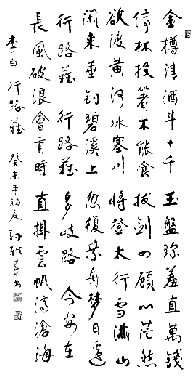 金樽清酒斗十千 玉盤珍羞直萬錢
停杯投箸不能食 拔劍四顧心茫然
欲渡黃河冰塞川 將登太行雪滿山
閑來垂釣碧溪上 忽復乘舟夢日邊
行路難 行路難 多歧路 今安在
長風破浪會有時 直掛雲帆濟滄海
李白 行路難 癸未年